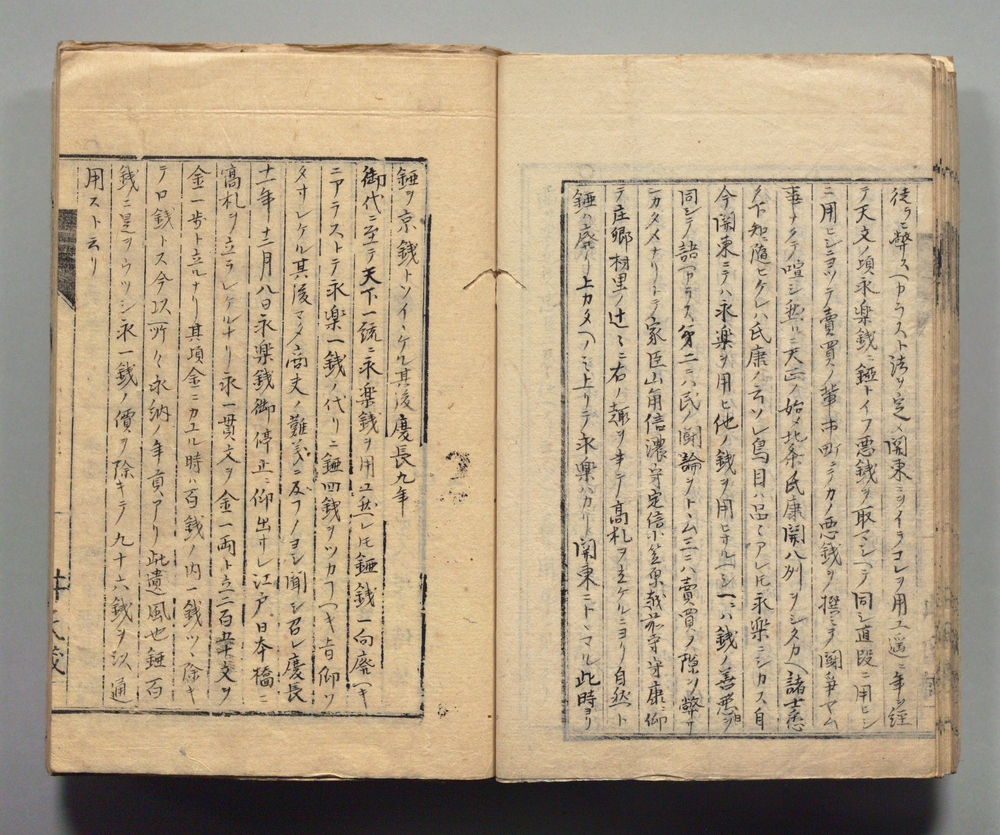 徒ラニ弊スヘカラスト法ヲ定メ関東ニヲイテコレヲ用エ遥ニ年ヲ経
テ天文ノ頃永楽銭ニ錏トイフ悪銭ヲ取マシヘテ同シ直段ニ用ヒシ
ニ用ヒシニヨツテ賣買ノ輩市町ニテカノ悪銭ヲ撰ミテ闘爭ヤム
事ナクテ喧シ然ルニ天正ノ始メ北条氏康関八列ヲシタカヘ諸士悉
ク下知随ヒケレハ氏康ノ云ソレ鳥目ハ品々アレ𪜈永楽ニシカス自
今関東ニテハ永楽ヲ用ヒ他ノ銭ヲ用ヒサルヘシ一ニハ銭ノ善悪ヲ
同シテ諸アラス第二ニハ民ノ闘論ヲトヽム三ニハ賣買ノ隙ヲ弊サ
ニカタメナリトテ家臣山角信濃守定信小笠原越前守守康ニ仰
テ庄郷村里ノ辻々ニ右ノ趣ヲ书テ高札ヲ立ケルニヨリ自然ト
錏ハ廃リ上カタヘノミ上リテ永楽ハカリ関東ニトヽマル此時ヨリ
錏ヲ京銭トソイヽケル其後慶長九年
御代ニ至テ天下一統ニ永楽銭ヲ用ユ然レ𪜈錏銭一向廃ヘキ
ニアラストテ永楽一銭ノ代リニ錏四銭ヲツカフヘキ旨仰ツ
タサレケル其後マタ商丈ノ難義ニ及フノヨシ聞シ召レ慶長
十一年十二月八日永楽銭御停止ニ仰出サレ江戸日本橋ニ
高札ヲ立ラレケルナリ永一貫文ヲ金一両ト立二百五十文ヲ
金一歩ト立ルナリ其頃金ニカユル時ハ百銭ノ内一銭ツヽ除キ
テロ銭トス今以所々永納ノ年貢アリ此遺風也錏百
銭ニ是ヲウツシ永一銭ノ價ヲ除キテ九十六銭ヲ以通
用スト云リ